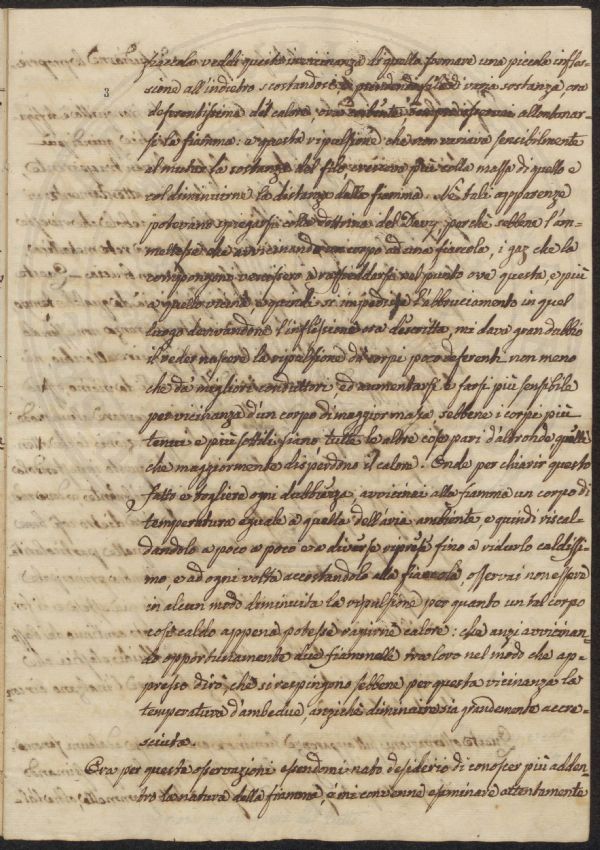 fiaccola veddi questa in vicinanza di quella formare una piccola infles-
sione all'indietro scostandosi
3
di varia sostanza, ora
deferentissima del calore, ora allontanar-
si la fiamma: e questa ripulsione che non variava sensibilmente
al mutar la sostanza del filo cresceva più colla massa di quello e
col diminuirne la distanza dalla fiamma. Nè tali apparenze
potevano spiegarsi colla dottrina del Davy, perchè sebbene l'am-
mettesse che avvicinando un corpo ad una fiaccola, i gaz che la
compongono venissero a raffreddarsi nel punto ove questa, è più
a quello vicina e quindi si impedisse l'abbruciamento in quel
luogo derivandone l'inflessione ora descritta, mi dava gran dubbio
il veder nascere la ripulsione da corpi poco deferenti non meno
che da migliori conduttori, ed aumentarsi e farsi più sensibile
per vicinanza d'un corpo di maggior massa sebbene i corpi più
tenui e più sottili siano tutte le altre cose pari d'altronde quelli
che maggiormente disperdono il calore. Onde per chiarir questo
fatto e togliere ogni dubbiezza, avvicinai alla fiamma un corpo di
temperatura eguale a quella dell'aria ambiente, e quindi riscal-
dandolo a poco a poco e a diverse riprese fino a ridurlo caldissi-
mo, e ad ogni volta accostandolo alla fiaccola, osservai non essere
in alcun modo diminuita la ripulsione per quanto un tal corpo
così caldo appena potesse rapirne calore: che anzi avvicinan-
do opportunamente due fiammelle tra loro nel modo che ap-
presso dirò, che si respingono sebbene per questa vicinanza la
temperatura d'ambedue, anzichè diminuire sia grandemente accre-
sciuta.
Ora per queste osservazioni essendomi nato desiderio di conoscer più adden-
tro la natura della fiamma, a mi convenne esaminare attentamente